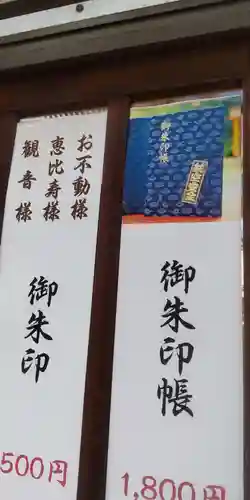 お不動様
恵比寿様
観音様
御朱印
500円
御朱印帳
御朱印帳
1,800円